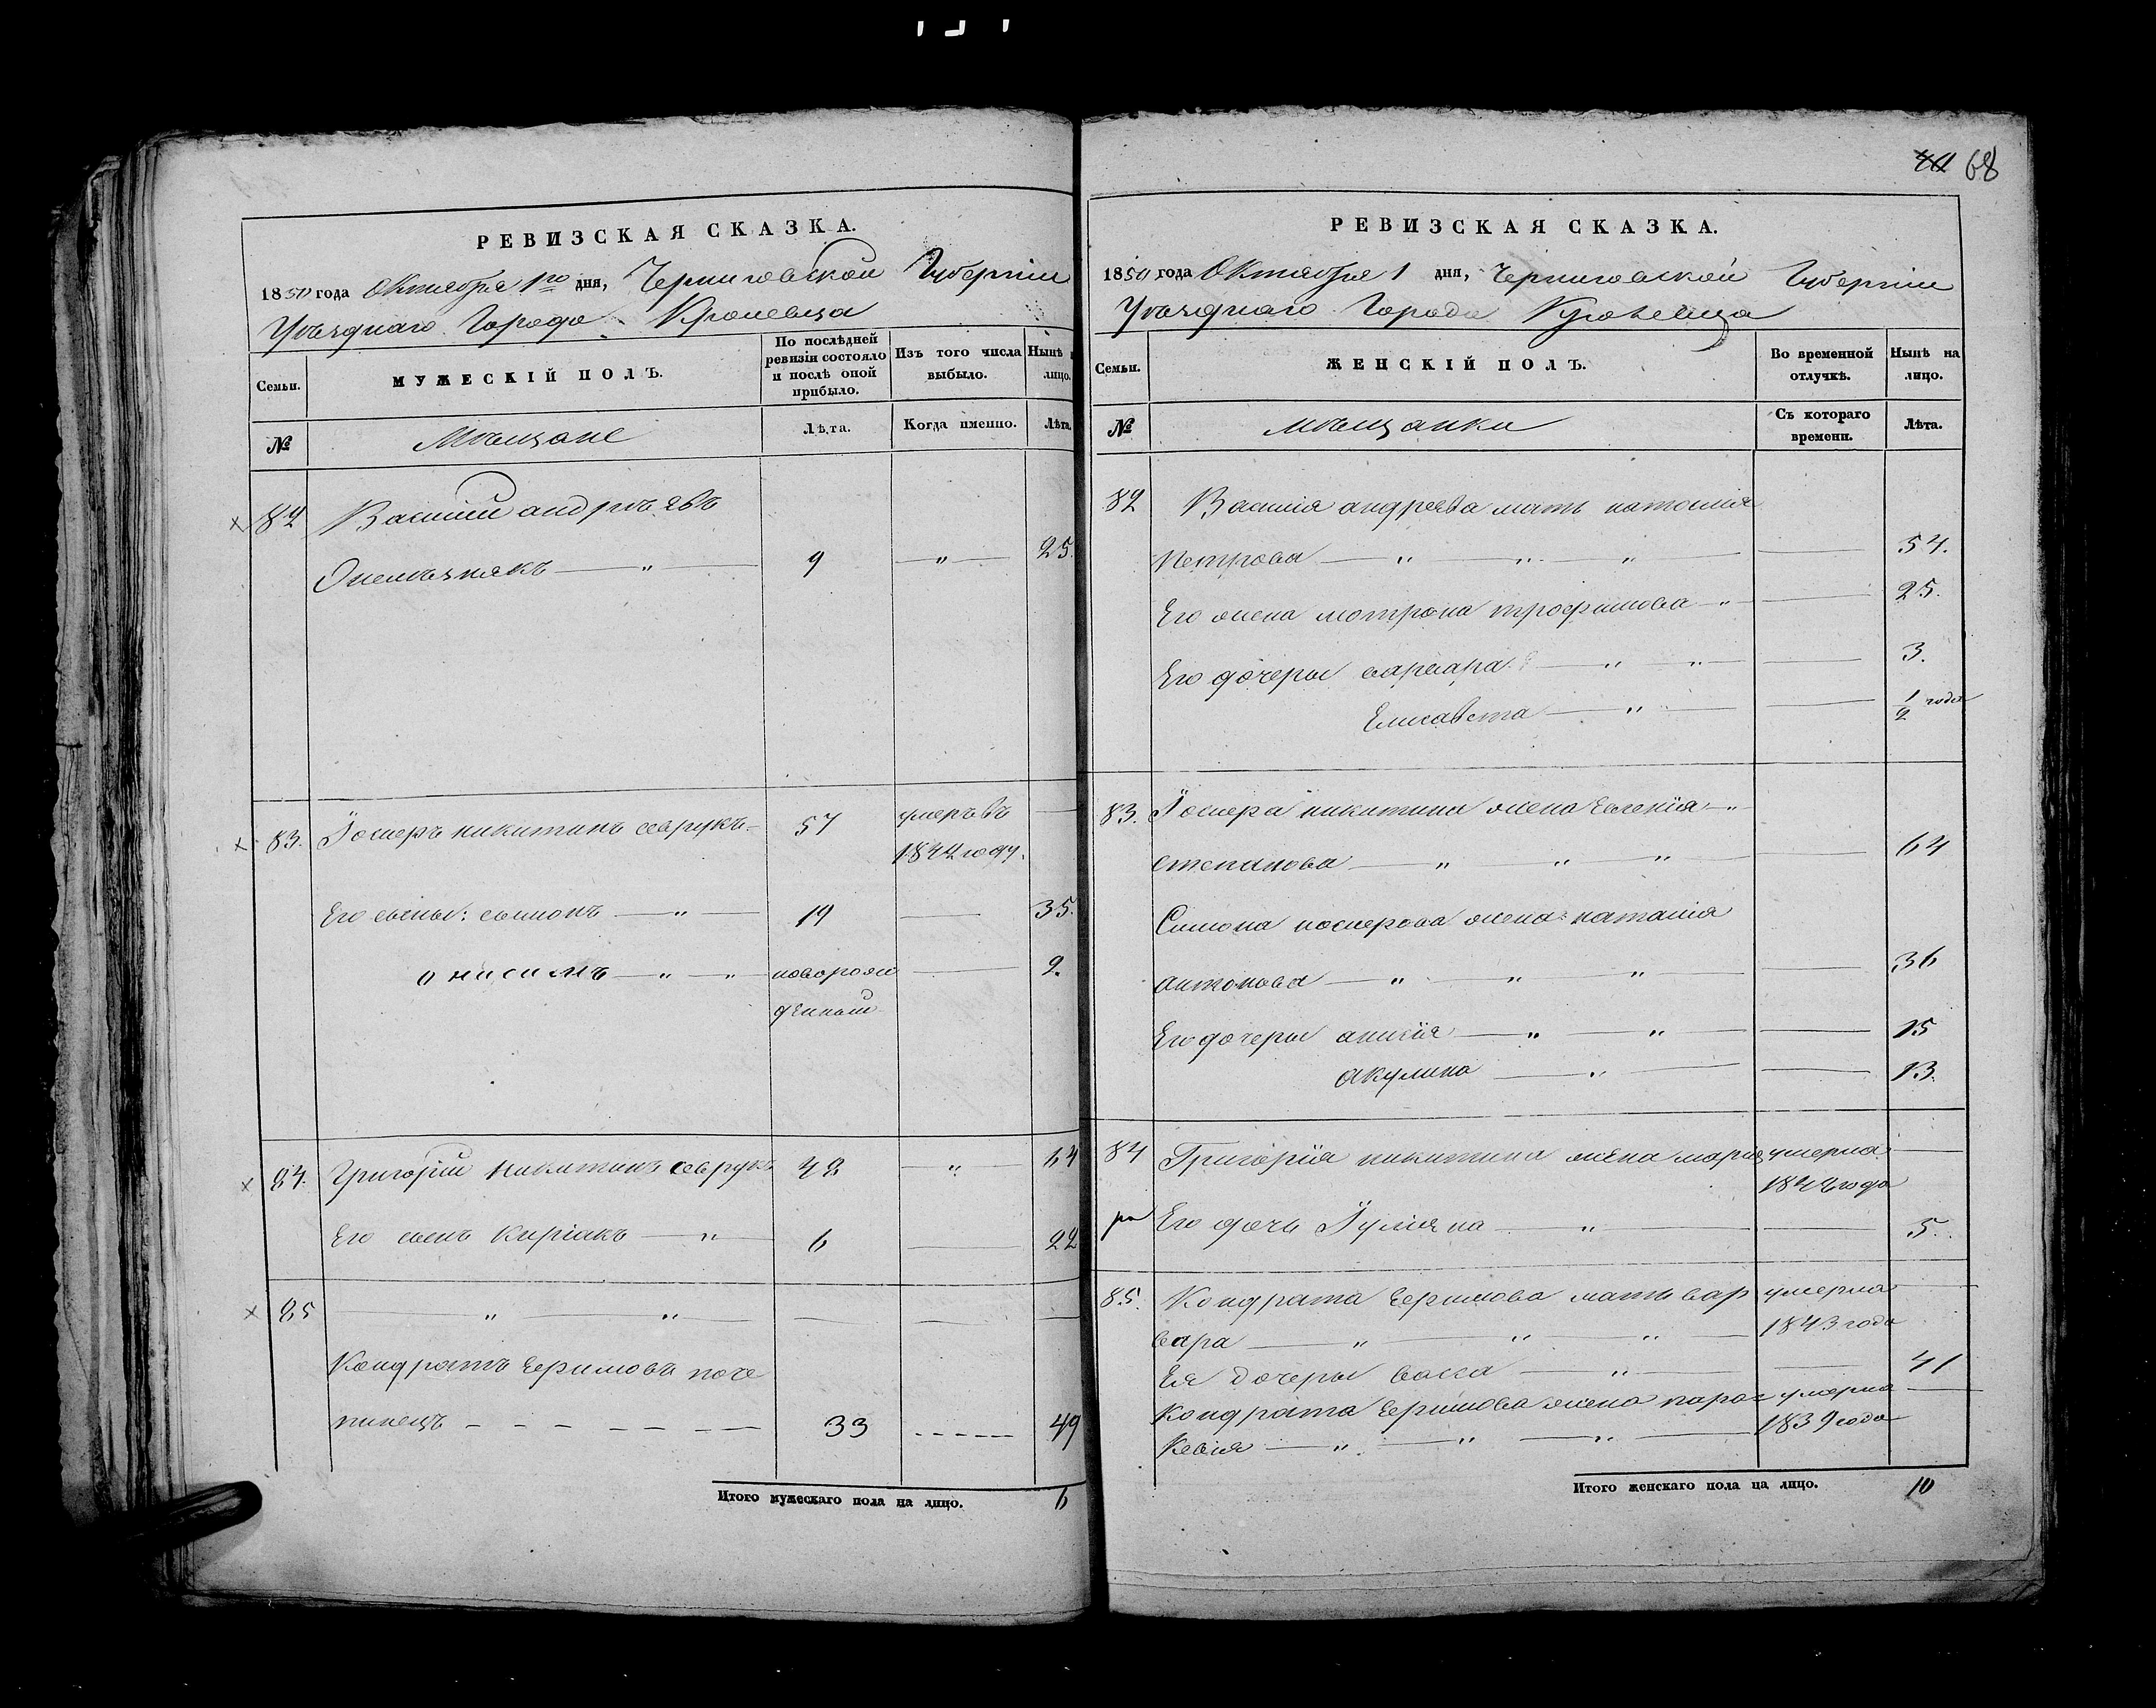 68
РЕВИЗСКАЯ СКАЗКА.
1850 года Октября 1го дня, Черниговской Губернiи
Уѣзднаго Города Кролевца
Семьи.
МУЖЕСКІЙ ПОЛЪ.
По послѣдней ревизіи состояло и послѣ оной прибыло.
Изъ того числа выбыло.
Нынѣ
лицо.
№
Мѣщане
Лѣта.
Когда именно.
Лѣта.
82 Василiй андрѣевъ
9 — " — 25.
83. Iосиеръ никитинъ севрукъ 57 умеръ въ —
1844 году.
Его сыны: сымонъ — " — 19 — 35.
онисимъ — " — " новорож — 9.
денный
84. Григорiй никитинъ севрукъ 48 — " — 64
Его сынъ Кирiакъ — " — 6 — 22
85 — " — " — — — —
Кондратъ Ееримовъ поче
пинецъ — — — — — — 33 - - - - - 49
Итого мужескаго пола на лицо. 6
РЕВИЗСКАЯ СКАЗКА.
1850 года Октября 1 дня, Черниговской Губернiи
Уѣзднаго Города Кролевца
Семьи.
ЖЕНСКІЙ ПОЛЪ.
Во временной отлучкѣ.
Нынѣ на лицо.
№
мѣщанки
Съ котораго времени.
Лѣта.
82 Василiя андреева мать
Петрова — " — " — " — — 54.
Его жена мотрона трофимова — " — 25.
Его дочеры варвара — " — " — — 3.
Елисавета — " — — 1/2 года
83. Iосиера никитина жена Евгенiя — "
степанова — " — " — " — — 64
Симона иосиерова жена: наталiя
антонова — " — " — " — — 36
Его дочеры аникiя — " — " — — 15
акулина — " — — 13.
84 Григорiя никитина жена марiя умерла —
1842 года
Его дочь Iулiяна — " — — 5.
85. Кондрата Ееримова мать вар умерла —
вара — " — " — " — 1843 года
Ея дочеры васса — " — — 41
Кондрата Ееримова жена парас умерла —
Кевiя — " — " — " — 1839 года
Итого женскаго пола на лицо. 10